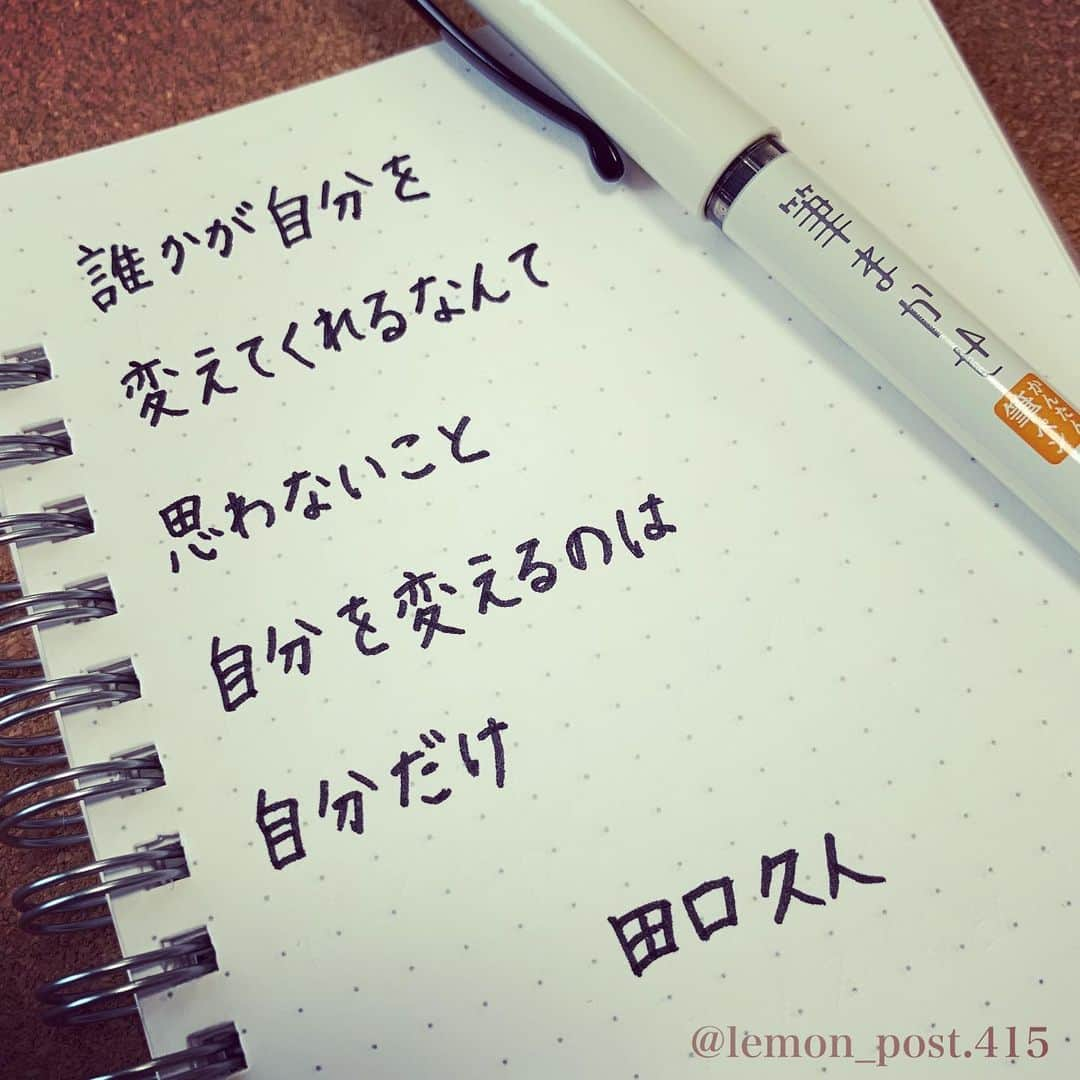 誰かが自分を
変えてくれるなんて
思わないこと
自分を変えるのは
自分だけ
田口久人
筆まかせ
かんたん
筆ペン
@lemon_post.415